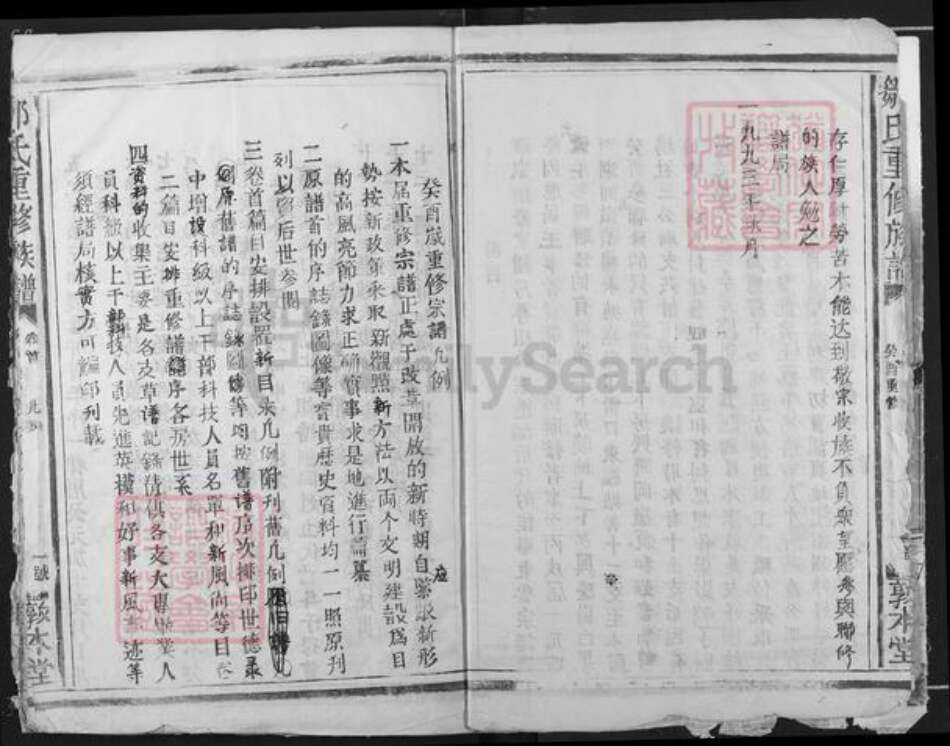 鄒氏重修族譜
癸酉重修
敦本堂
存仁厚 勞苦木能达到敬宗收族不負衆望愿參與聯修
的族人勉之
譜局
一九九三年 月
癸酉嵗重修宗譜凢例
一本届重修宗譜正處于改革開放的新時期自應緊跟新形
勢按新政策采取新觀點新方法以两个文明建設爲目
的高風亮節力求正确實事求是地進行篇纂
二原譜首的序誌錄圖像等寳貴歷史資料均一一照原刊
列以 后世参閱
三卷首篇目安排設置新目录凢例附刊舊凢例
原舊譜的序誌錄圖像等均按舊譜 次排印世德录
中增設科級以上干部科技人員名單和新風尚等目
二篇目安排重修譜 序各房世系
四資料的收集主要是各支草譜記錄 供各支大專畢業人
員科級以上干部科技人員先進英模和好事新風 迹等
須經譜局核實方可編印刊載
氏重修族譜
卷首
凢例
一號
敦本堂
FamilySearch